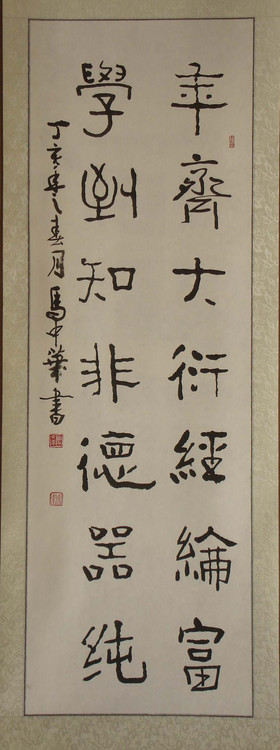 年齊大衍經綸富
學到知非德器純
丁亥年之春月馬中葉書